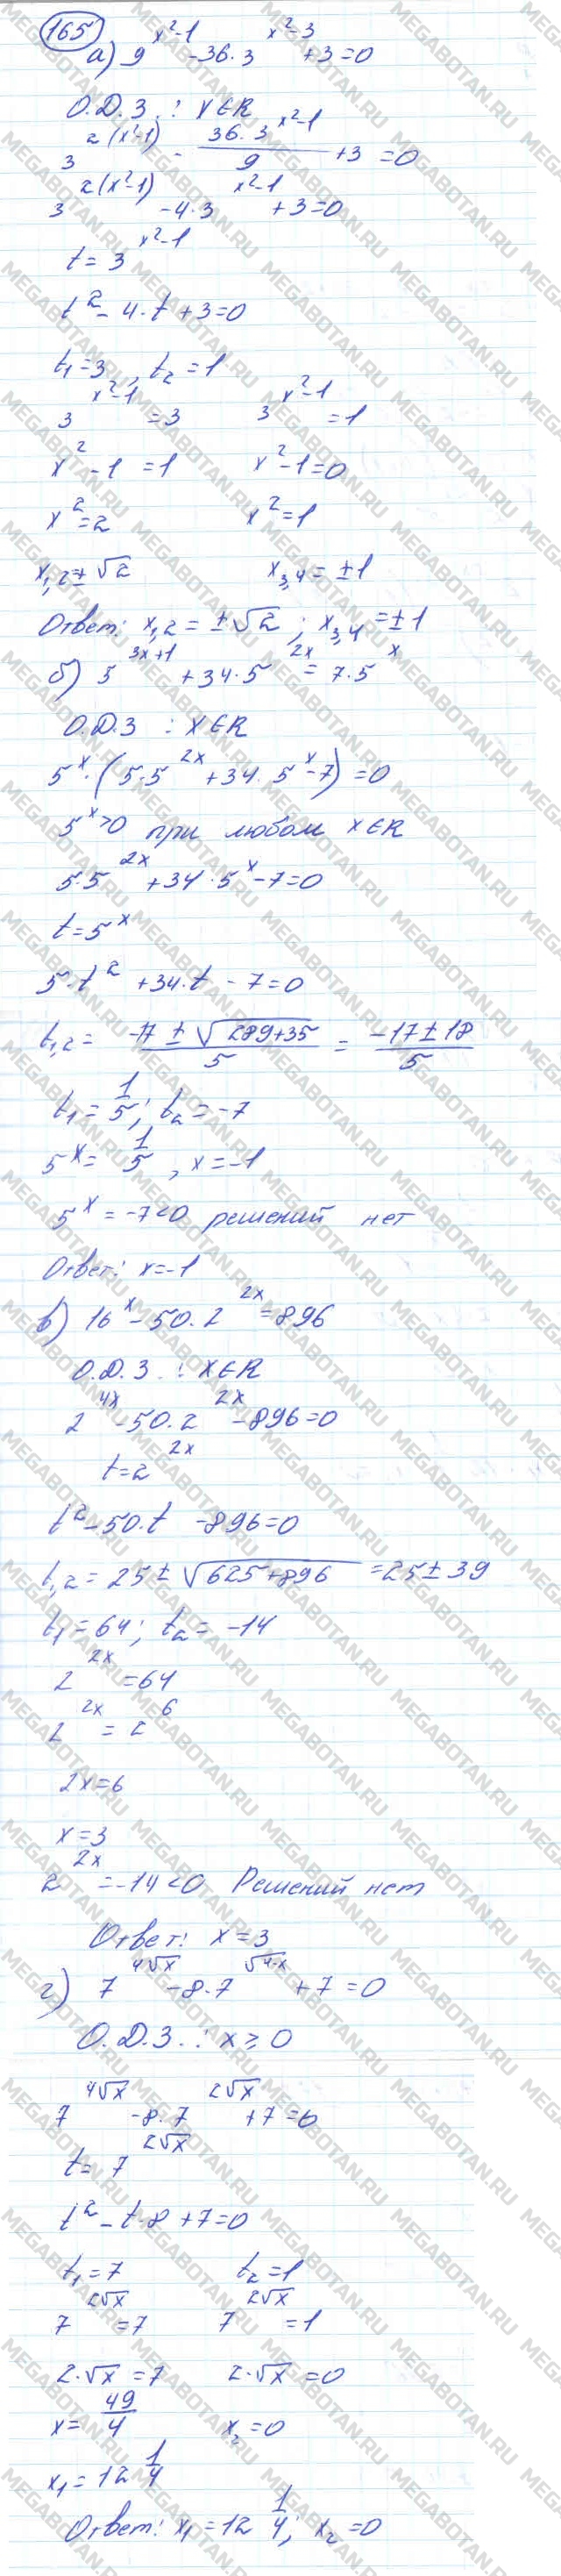 165
а) 9^(x²-1) - 36·3^(x²-3) + 3 = 0
О.Д.З.: X ∈ R
3^(2(x²-1)) - (36·3^(x²-1))/9 + 3 = 0
3^(2(x²-1)) - 4·3^(x²-1) + 3 = 0
t = 3^(x²-1)
t² - 4·t + 3 = 0
t₁ = 3, t₂ = 1
3^(x²-1) = 3 3^(x²-1) = 1
x² - 1 = 1 x² - 1 = 0
x² = 2 x² = 1
x₁,₂ = ± √2 x₃,₄ = ±1
Ответ: x₁,₂ = ±√2; x₃,₄ = ±1
б) 5^(3x+1) + 34·5^(2x) = 7·5^x
О.Д.З : X ∈ R
5^x·(5·5^(2x) + 34·5^x - 7) = 0
5^x > 0 при любом X ∈ R
5·5^(2x) + 34·5^x - 7 = 0
t = 5^x
5·t² + 34·t - 7 = 0
t₁,₂ = (-17 ± √(289+35))/5 = (-17 ± 18)/5
t₁ = 1/5; t₂ = -7
5^x = 1/5, x = -1
5^x = -7 < 0 решений нет
Ответ: x = -1
в) 16^x - 50·2^(2x) = 896
О.Д.З.: X ∈ R
2^(4x) - 50·2^(2x) - 896 = 0
t = 2^(2x)
t² - 50·t - 896 = 0
t₁,₂ = 25 ± √(625+896) = 25 ± 39
t₁ = 64; t₂ = -14
2^(2x) = 64
2^(2x) = 2^6
2x = 6
x = 3
2^(2x) = -14 < 0 Решений нет
Ответ: x = 3
г) 7^(4√x) - 8·7^(√(4·x)) + 7 = 0
О.Д.З.: x ≥ 0
7^(4√x) - 8·7^(2√x) + 7 = 0
t = 7^(2√x)
t² - t·8 + 7 = 0
t₁ = 7 t₂ = 1
7^(2√x) = 7 7^(2√x) = 1
2·√x = 7 2·√x = 0
x = 49/4 x₂ = 0
x₁ = 12 1/4
Ответ: x₁ = 12 1/4; x₂ = 0
MEGABOTAN.RU